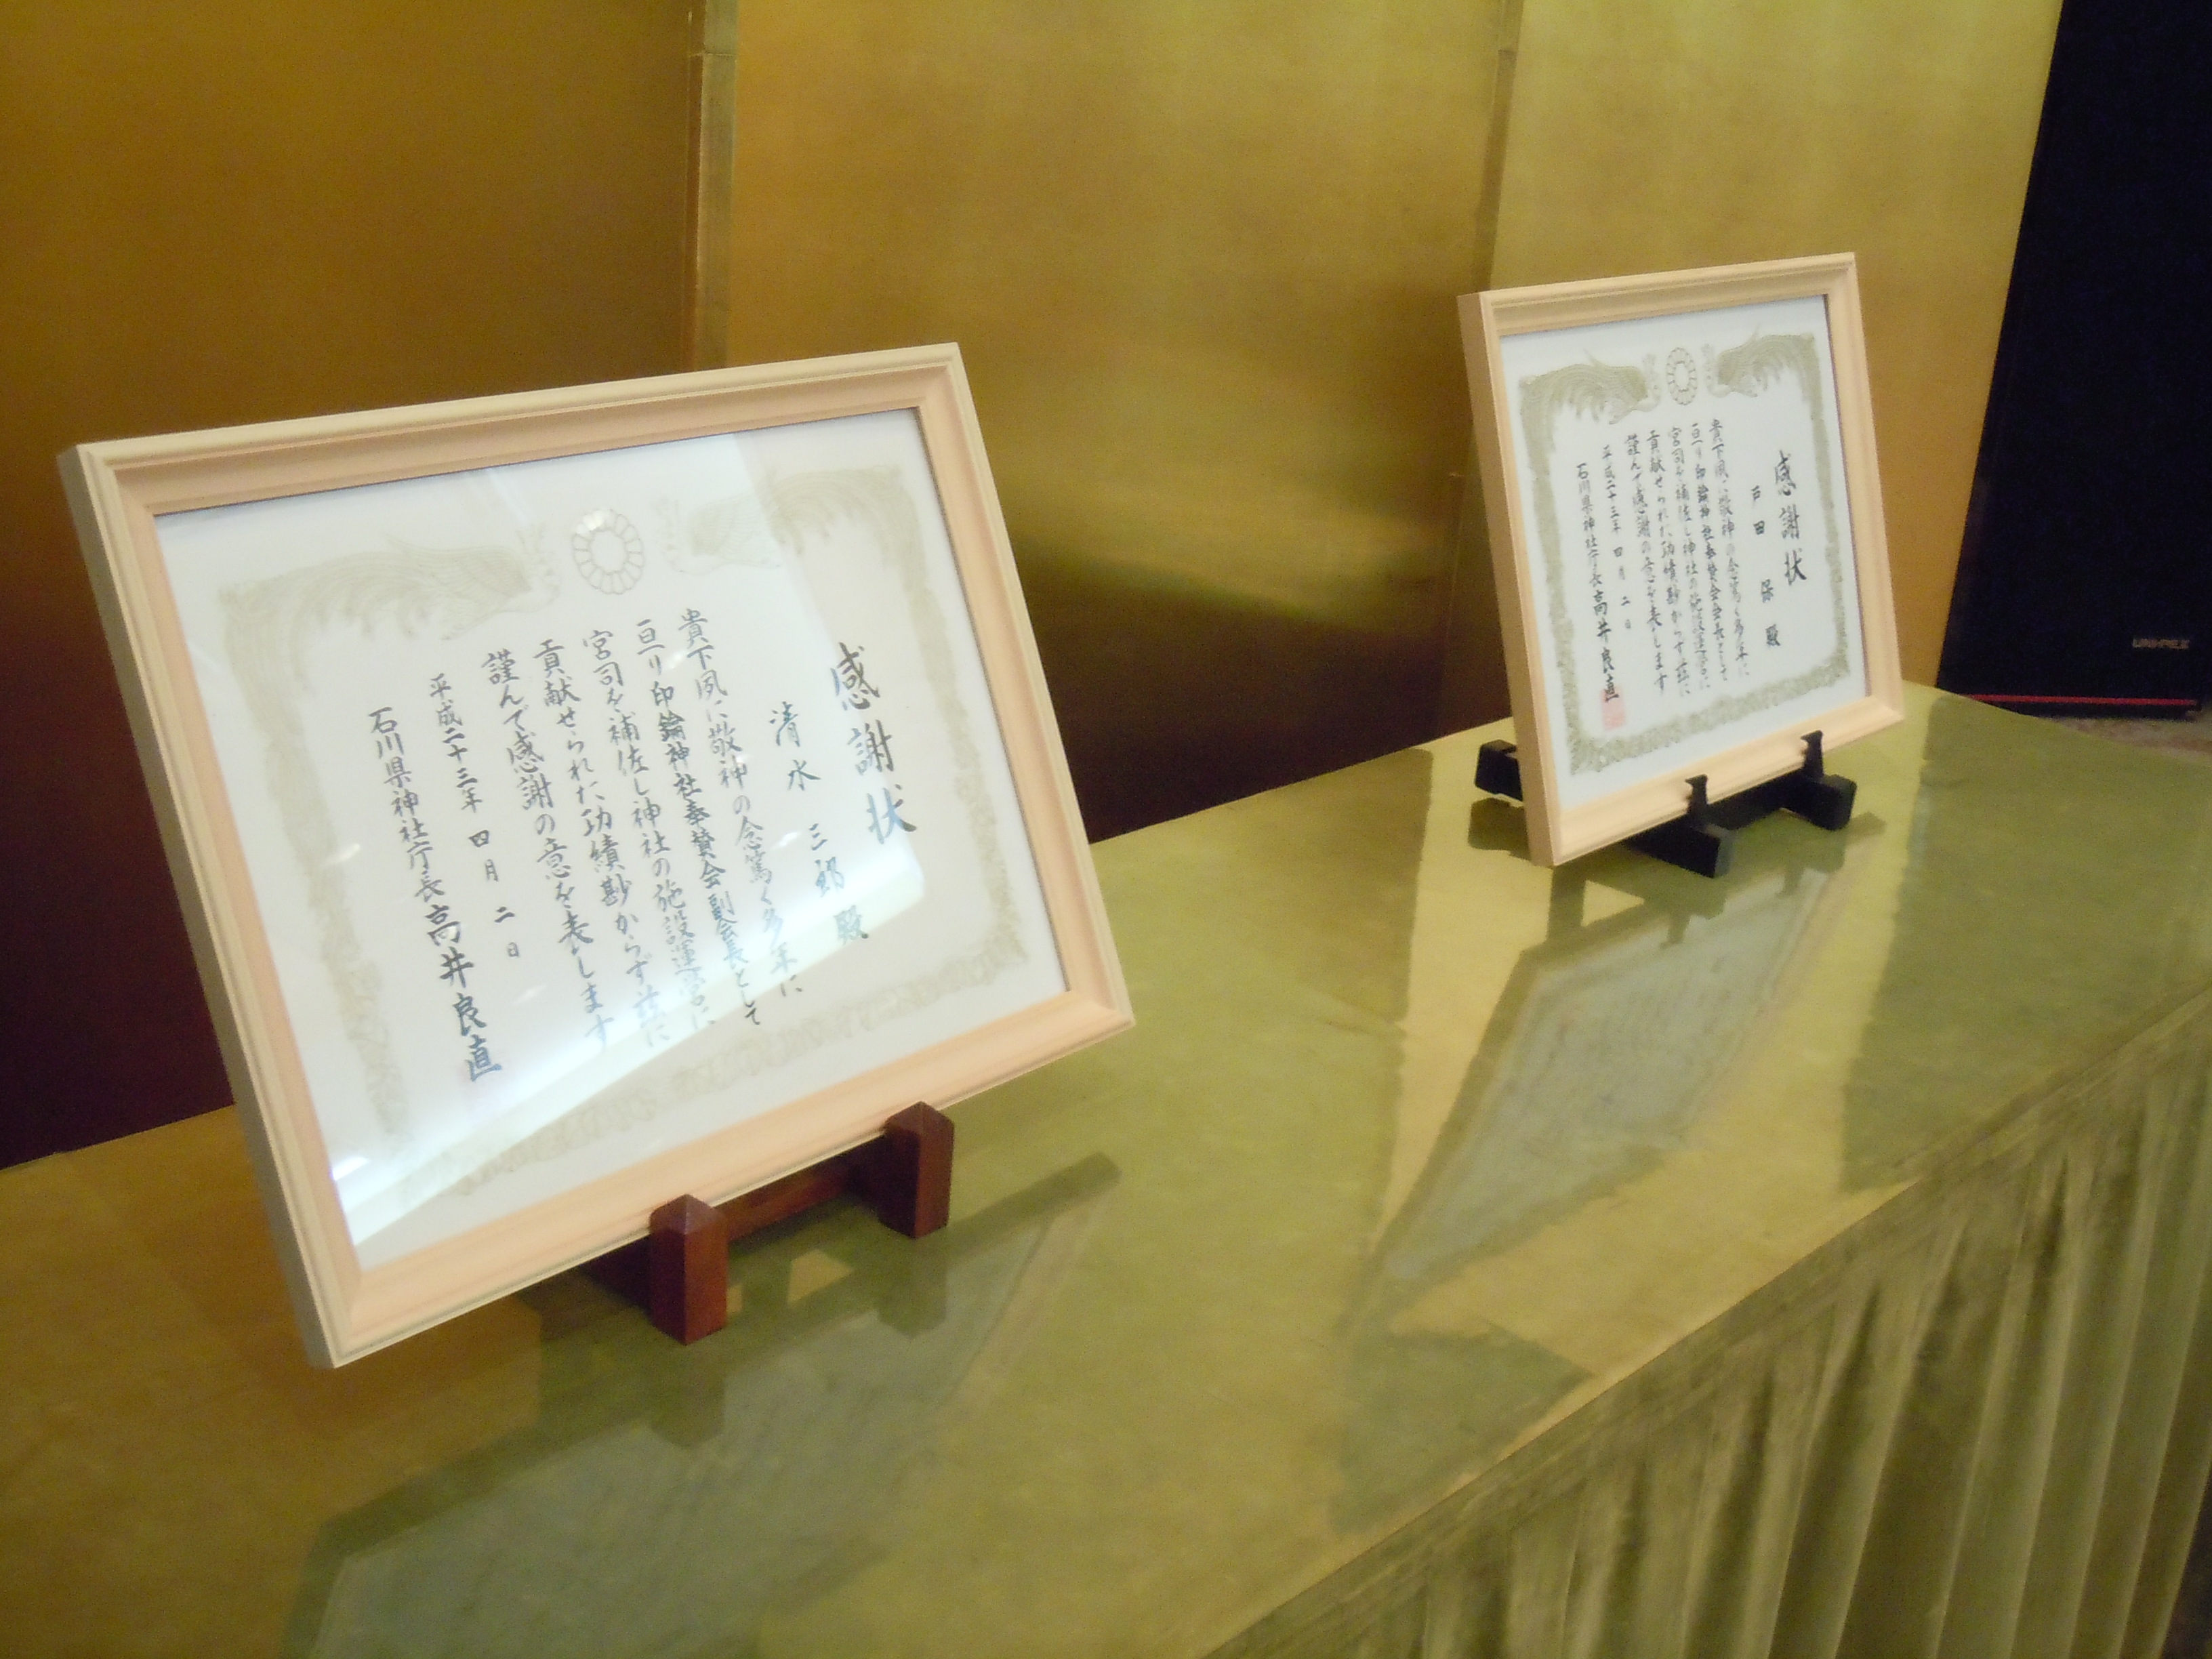 感謝状
清水三郎殿
貴下夙に敬神の念篤く多年に
亘り印鑰神社奉賛会副会長として
宮司を補佐し神社の施設運営に
貢献せられた功績尠からず茲に
謹んで感謝の意を表します
平成二十三年四月二日
石川県神社庁長高井良直
感謝状
戸田保殿
貴下夙に敬神の念篤く多年に
亘り印鑰神社奉賛会会長として
宮司を補佐し神社の施設運営に
貢献せられた功績尠からず茲に
謹んで感謝の意を表します
平成二十三年四月二日
石川県神社庁長高井良直
UNI-PEX